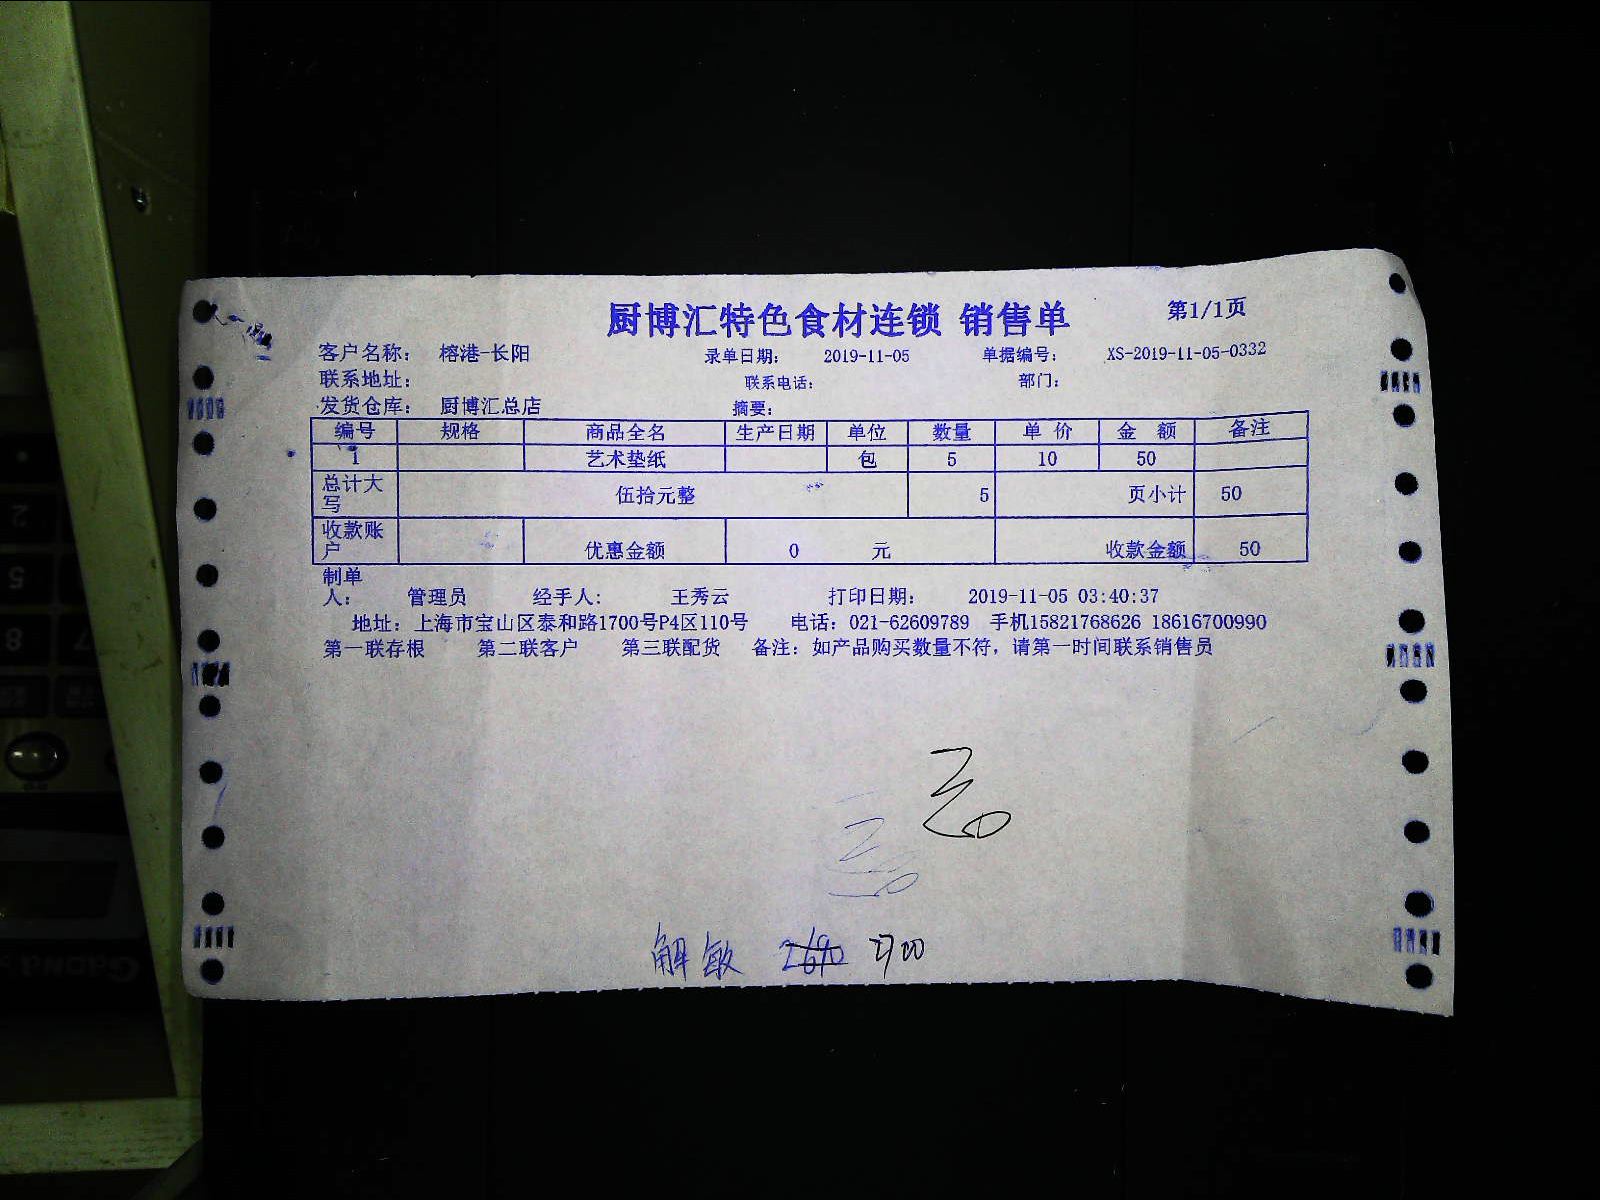 厨博汇特色食材连锁 销售单 第1/1页
客户名称： 榕港-长阳 录单日期： 2019-11-05 单据编号： XS-2019-11-05-0332
联系地址： 联系电话： 部门：
发货仓库： 厨博汇总店 摘要：
编号 规格 商品全名 生产日期 单位 数量 单价 金额 备注
1 艺术垫纸 包 5 10 50
总计大写 伍拾元整 5 页小计 50
收款账户 优惠金额 0 元 收款金额 50
制单人： 管理员 经手人： 王秀云 打印日期： 2019-11-05 03:40:37
地址：上海市宝山区泰和路1700号P4区110号 电话：021-62609789 手机15821768626 18616700990
第一联存根 第二联客户 第三联配货 备注：如产品购买数量不符，请第一时间联系销售员
解敏 2700